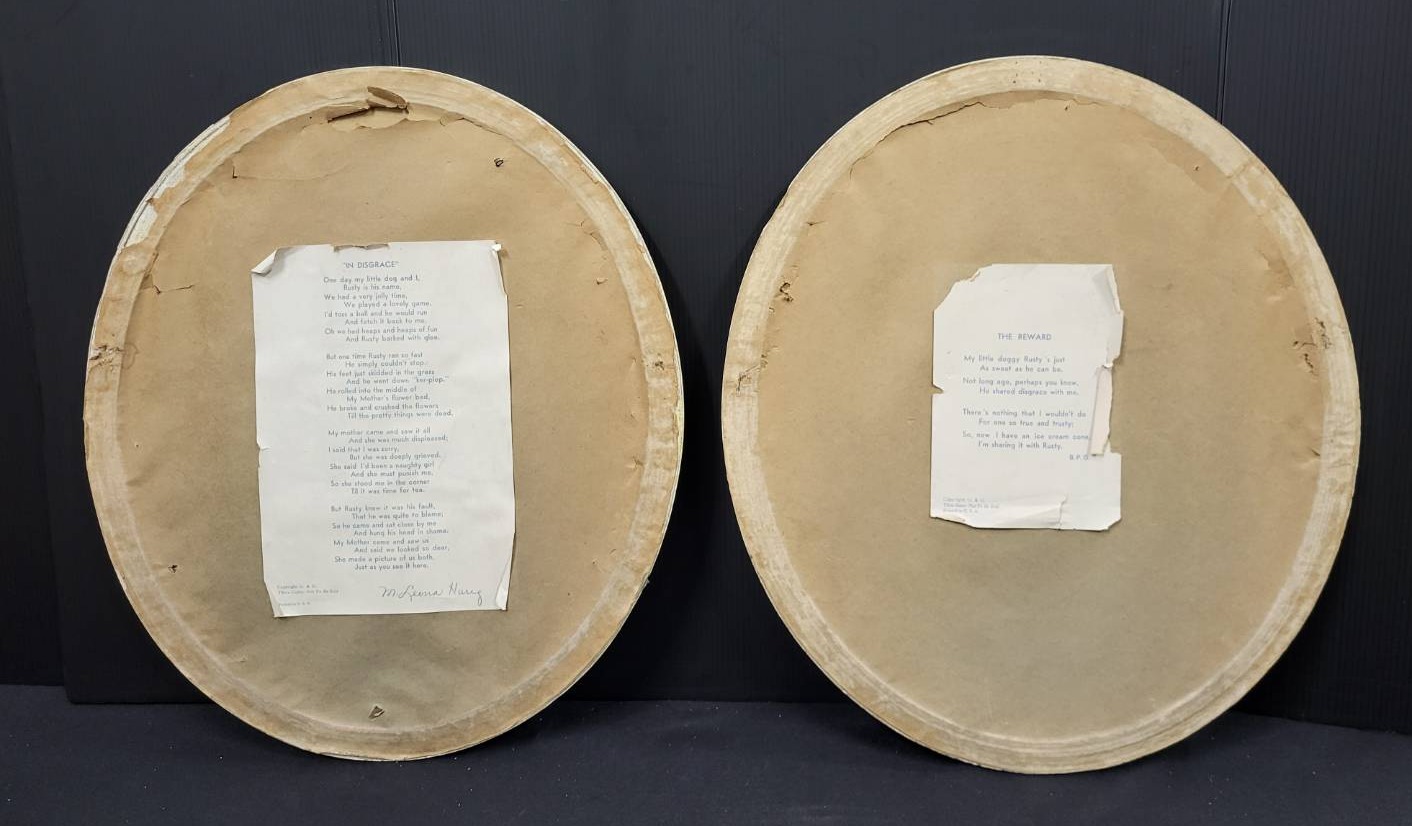 "IN DISGRACE"
One day my little dog and I,
Rusty is his name,
We had a very jolly time,
We played a lovely game.
I'd toss a ball and he would run
And fetch it back to me.
Oh we had heaps and heaps of fun
And Rusty barked with glee.
But one time Rusty ran so fast
He simply couldn't stop.
His feet just skidded in the grass
And he went down "ker-plop."
He rolled into the middle of
My Mother's flower bed,
He broke and crushed the flowers
Till the pretty things were dead.
My mother came and saw it all
And she was much displeased;
I said that I was sorry,
But she was deeply grieved.
She said I'd been a naughty girl
And she must punish me,
So she stood me in the corner
Till it was time for tea.
But Rusty knew it was his fault,
That he was quite to blame;
So he came and sat close by me
And hung his head in shame.
My Mother came and saw us
And said we looked so dear,
She made a picture of us both,
Just as you see it here.
Copyright
M. Leona
THE REWARD
My little doggy Rusty's just
As sweet as he can be.
Not long ago, perhaps you know,
He shared disgrace with me.
There's nothing that I wouldn't do
For one so true and trusty;
So, now I have an ice cream cone,
I'm sharing it with Rusty.
B.P.G.
Copyright